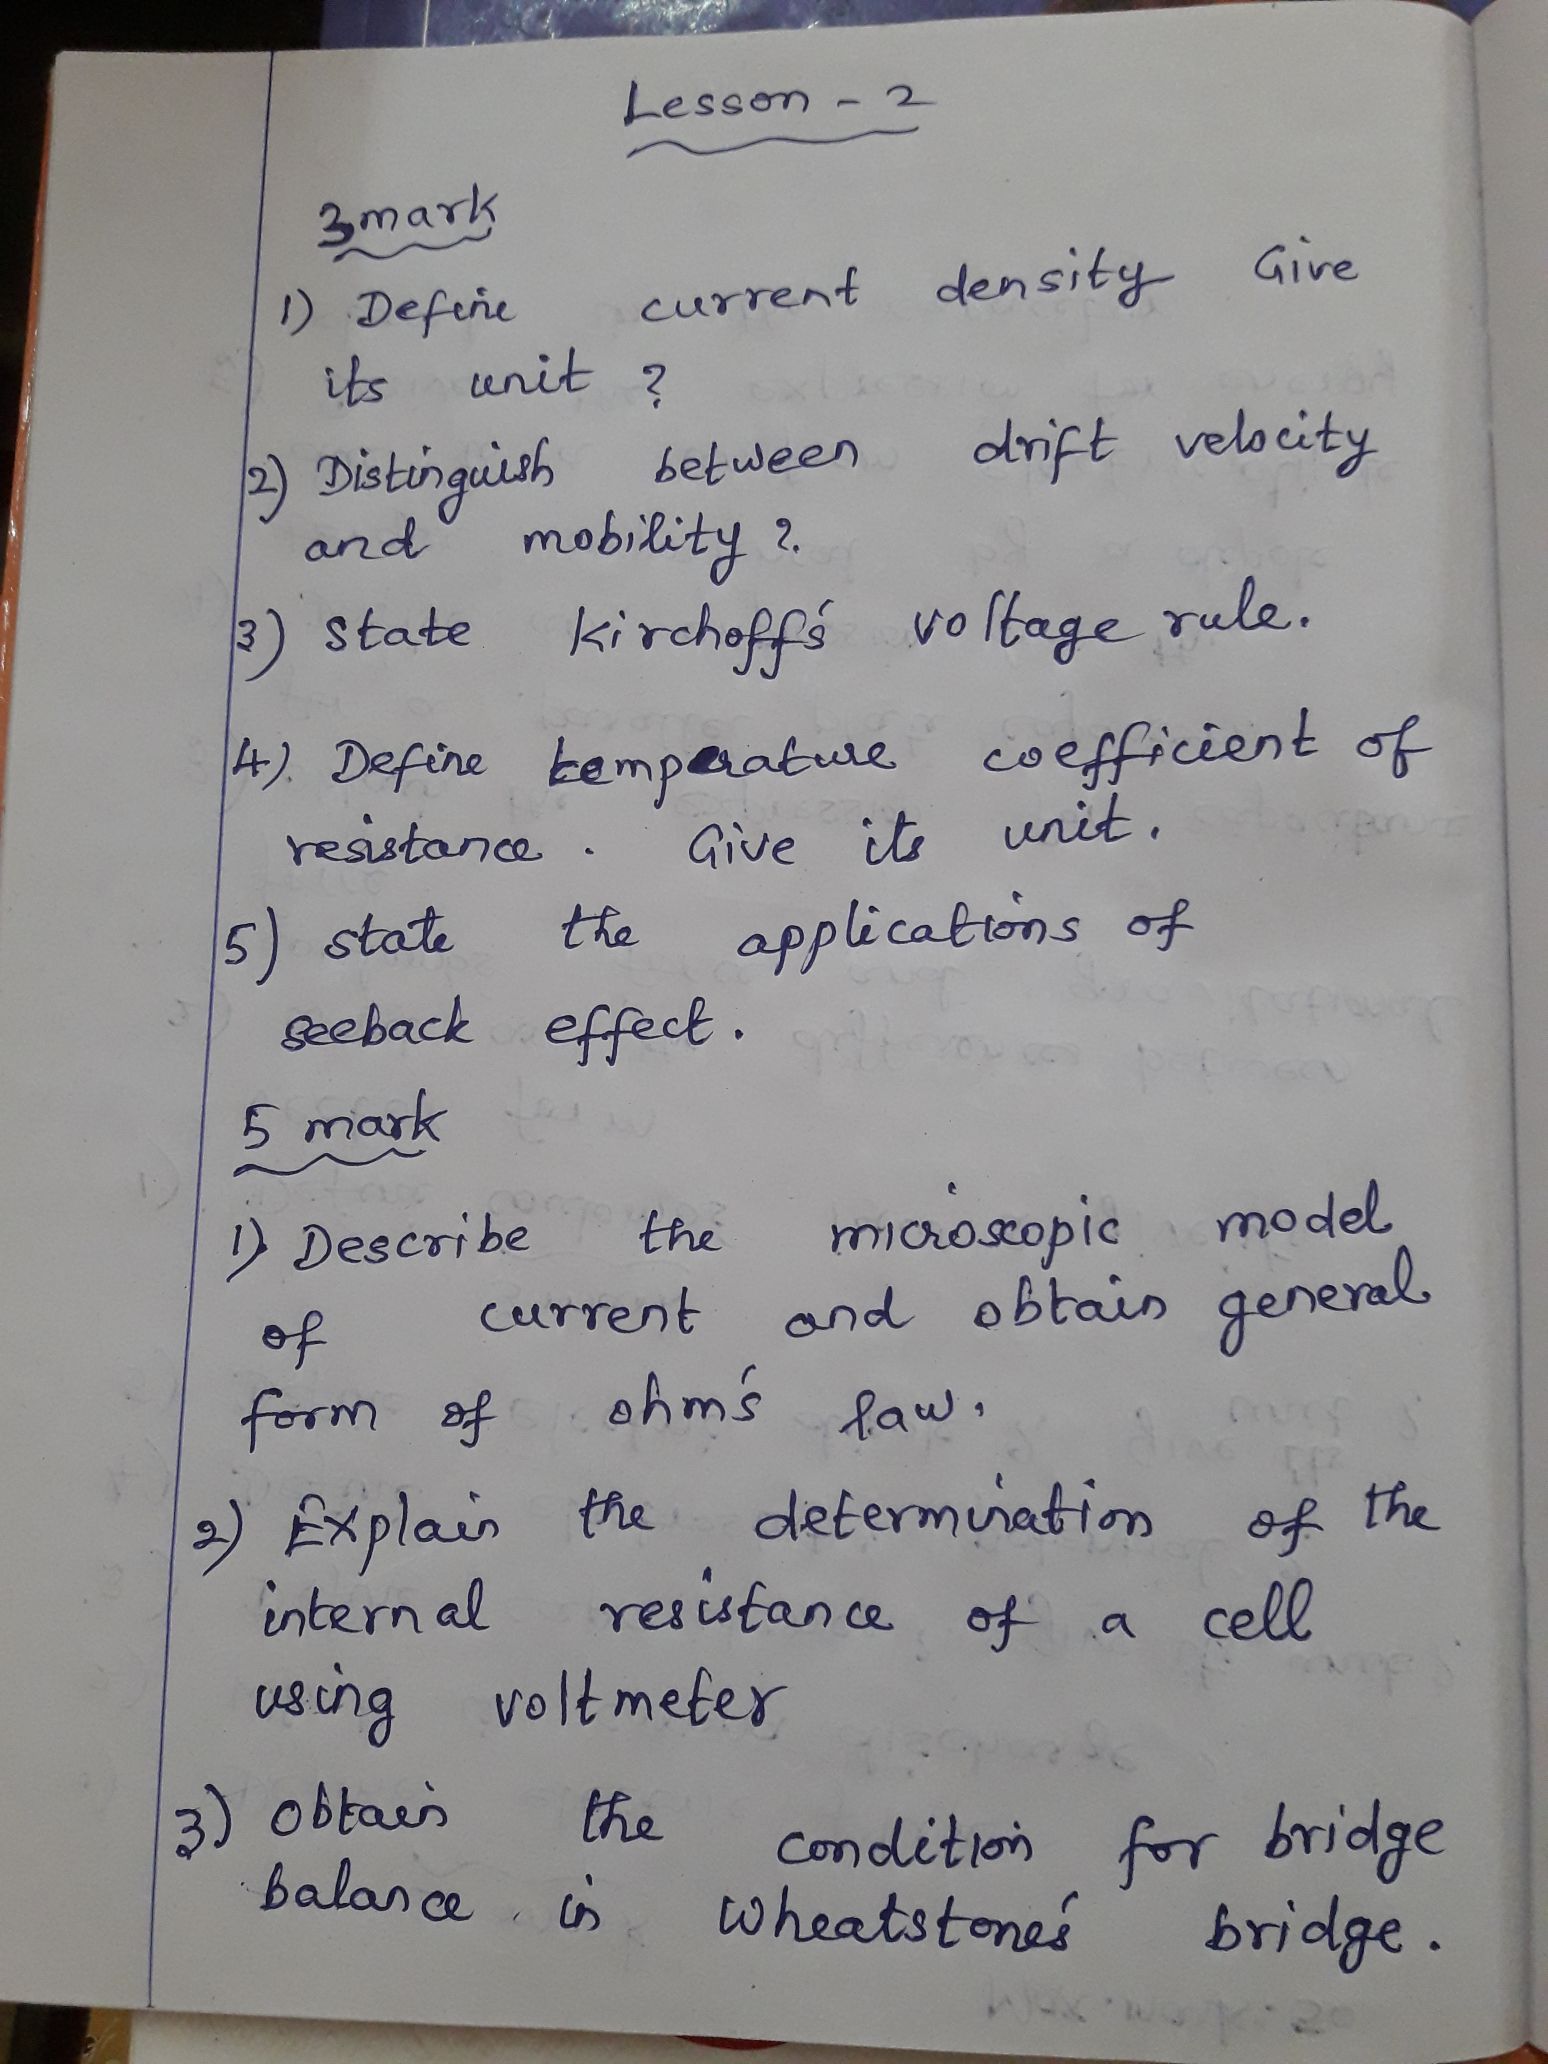 Lesson - 2
3mark
1) Define current density Give
its unit ?
2) Distinguish between drift velocity
and mobility ?.
3) State Kirchoff's voltage rule.
4). Define temperature coefficient of
resistance. Give its unit.
5) state the applications of
seeback effect.
5 mark
1) Describe the microscopic model
of current and obtain general
form of ohm's law.
2) Explain the determination of the
internal resistance of a cell
using voltmeter
3) Obtain the condition for bridge
balance in Wheatstone's bridge.